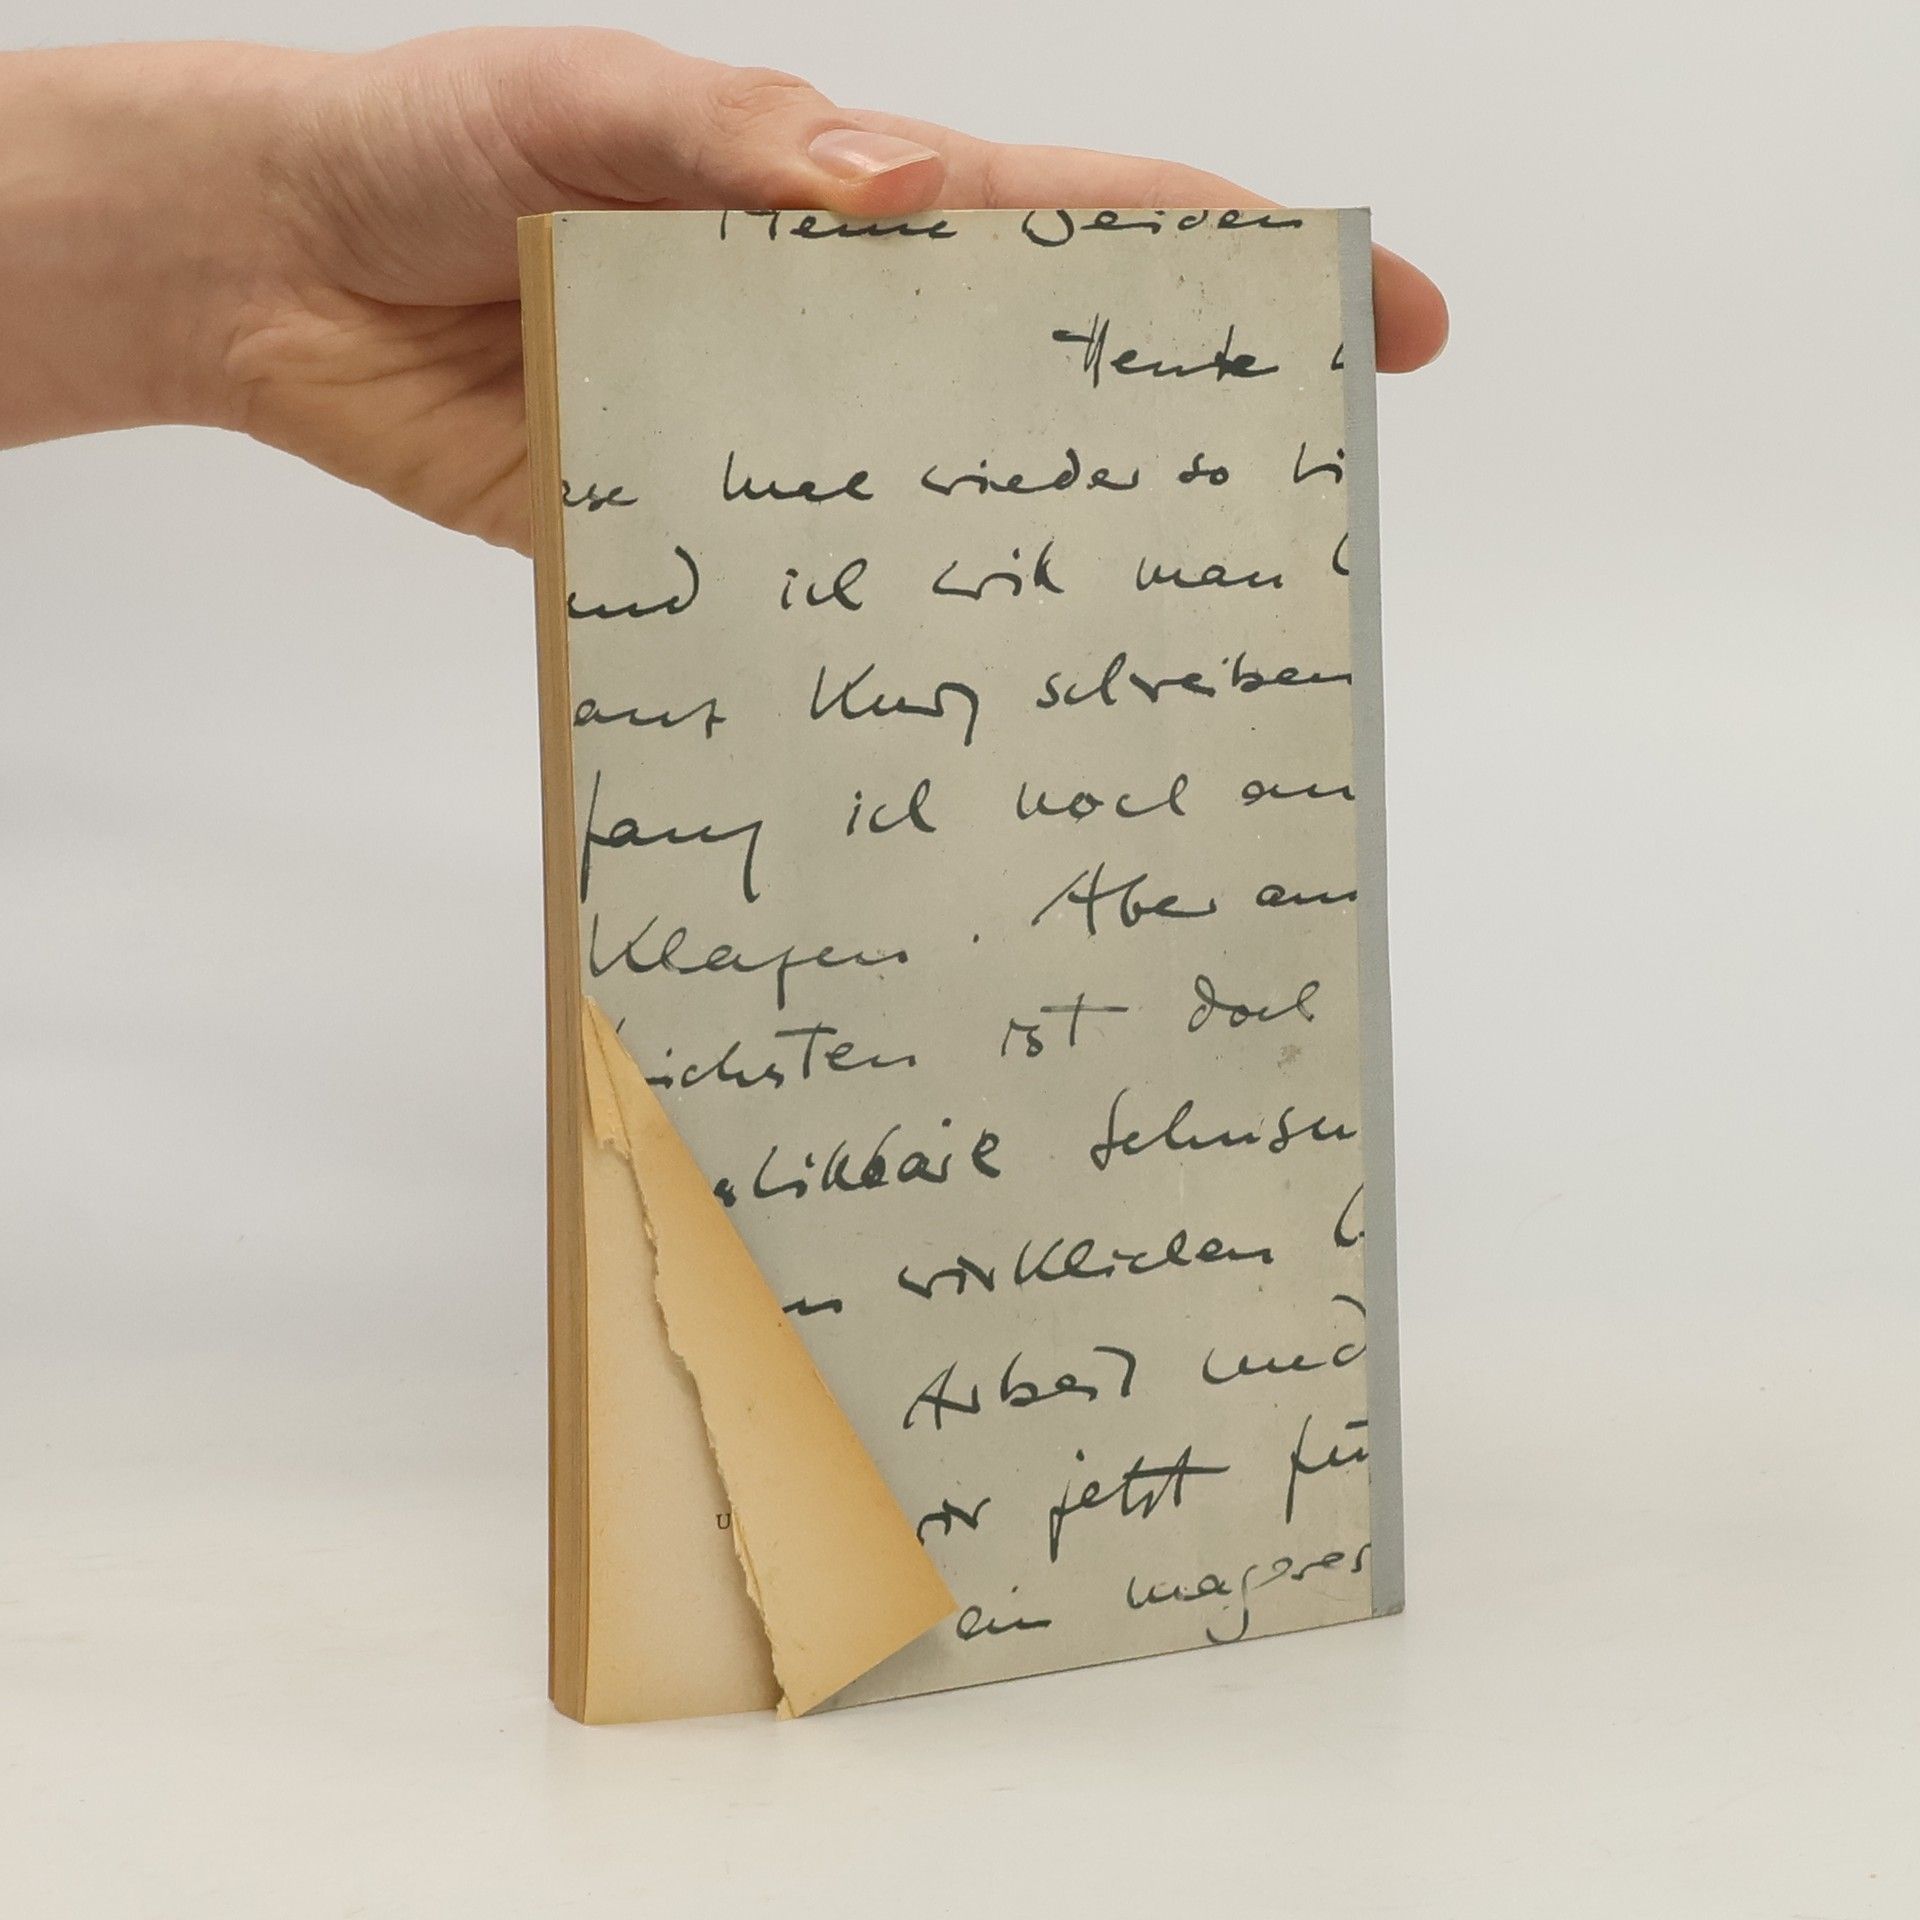 Meine Beiden
Heute
mal wieder so
und ich will man
ans Kurz schreiben
fang ich noch an
Klagen. Aber am
ichsten ist doch
Sehnsu
wirklichen
Arbeit und
wir jetzt fü
ein mageres
U